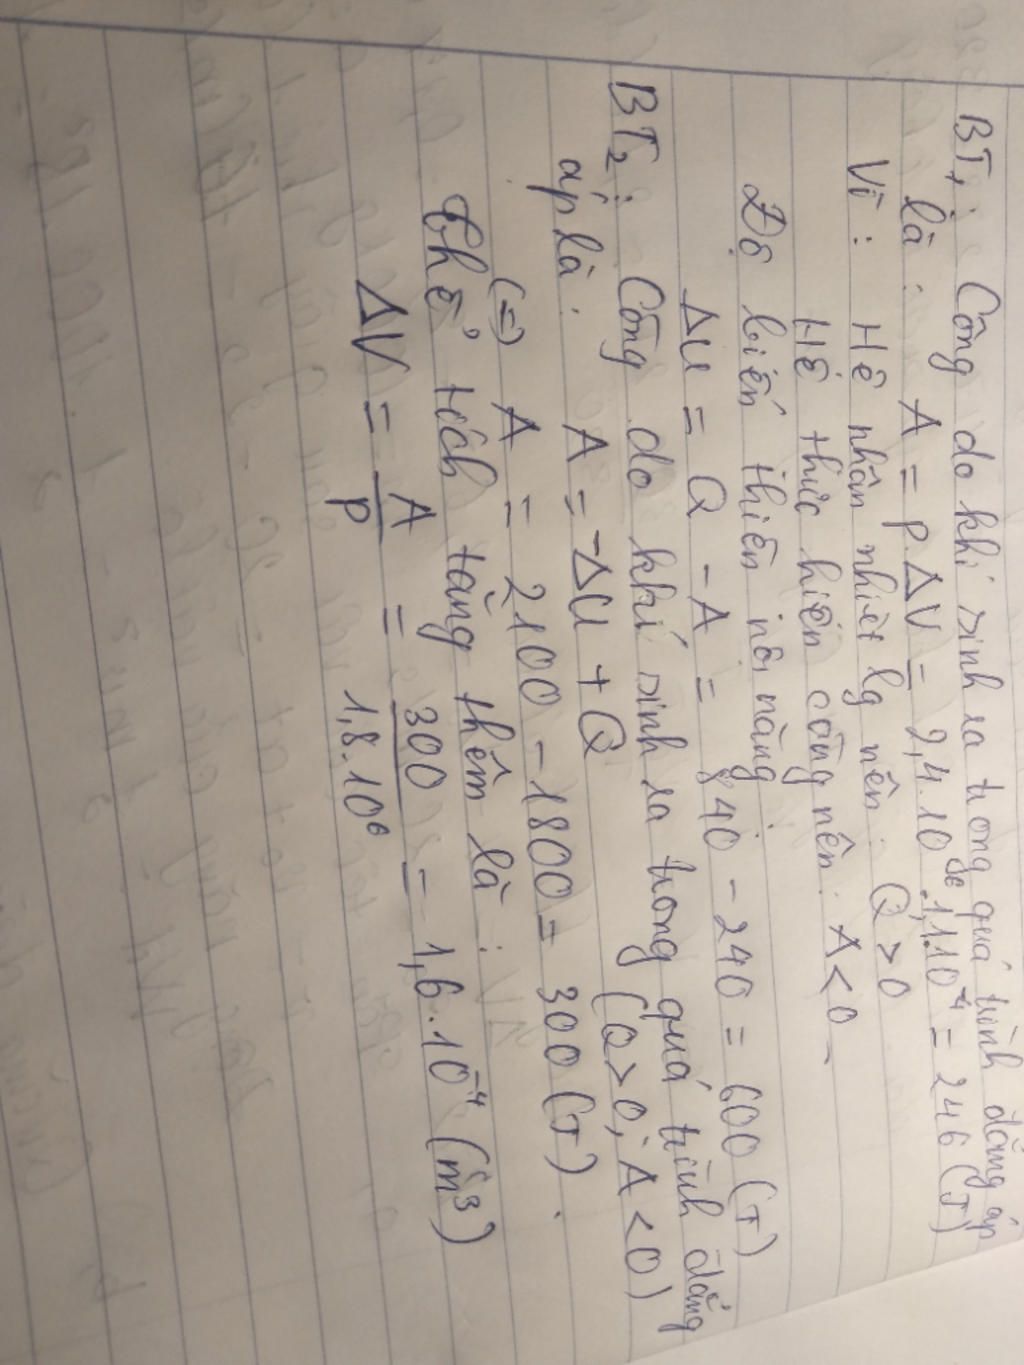 BT1: Công do khí sinh ra trong quá trình đẳng áp
là: A = p.ΔV = 2,4.10⁶.1,1.10⁻⁴ = 246 (J)
Vì: Hệ nhân nhiệt lg nên: Q > 0
Hệ thức hiện công nên: A < 0
Độ biến thiên nội năng:
ΔU = Q - A = 840 - 240 = 600 (J)
BT2: Công do khí sinh ra trong quá trình đẳng
áp là: A = -ΔU + Q (Q > 0; A < 0)
(=) A = 2100 - 1800 = 300 (J).
Thể tích tăng thêm là:
ΔV = A/p = 300/1,8.10⁶ = 1,6.10⁻⁴ (m³)